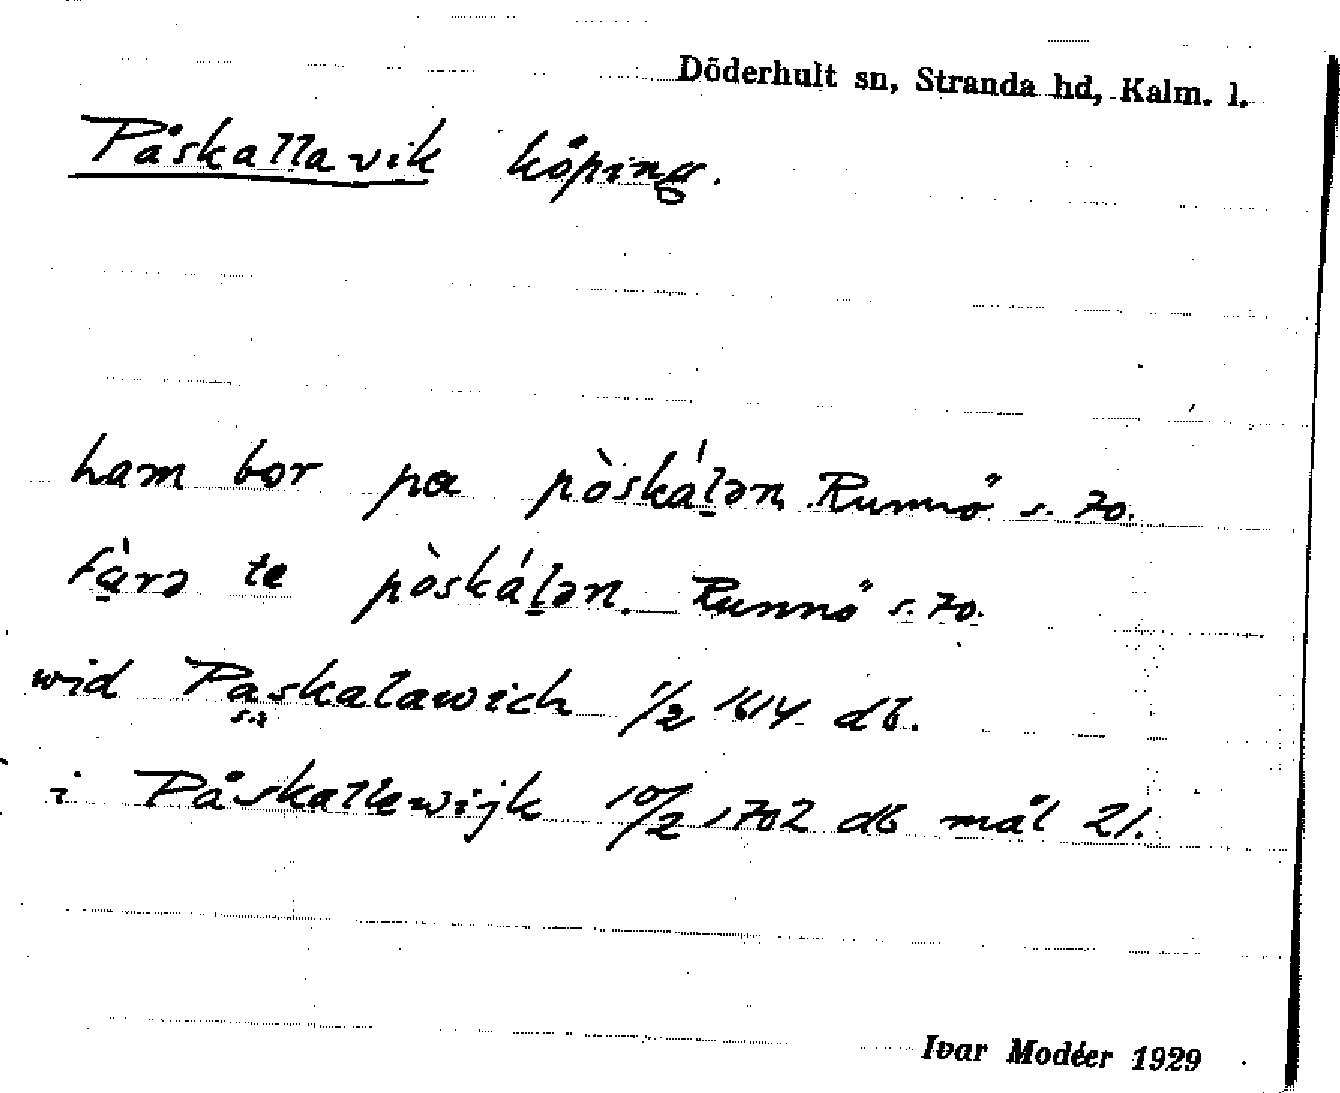 Döderhult sn, Stranda hd, Kalm. l.
Påskallavik köping.
ham bor pa pòskáḷən Runnö s. 70.
fàrə te pòskáḷən. Runnö s. 70.
wid Paskalawich 1/2 1614 db.
i Påskallewijk 10/2 1702 db mål 21.
Ivar Modéer 1929